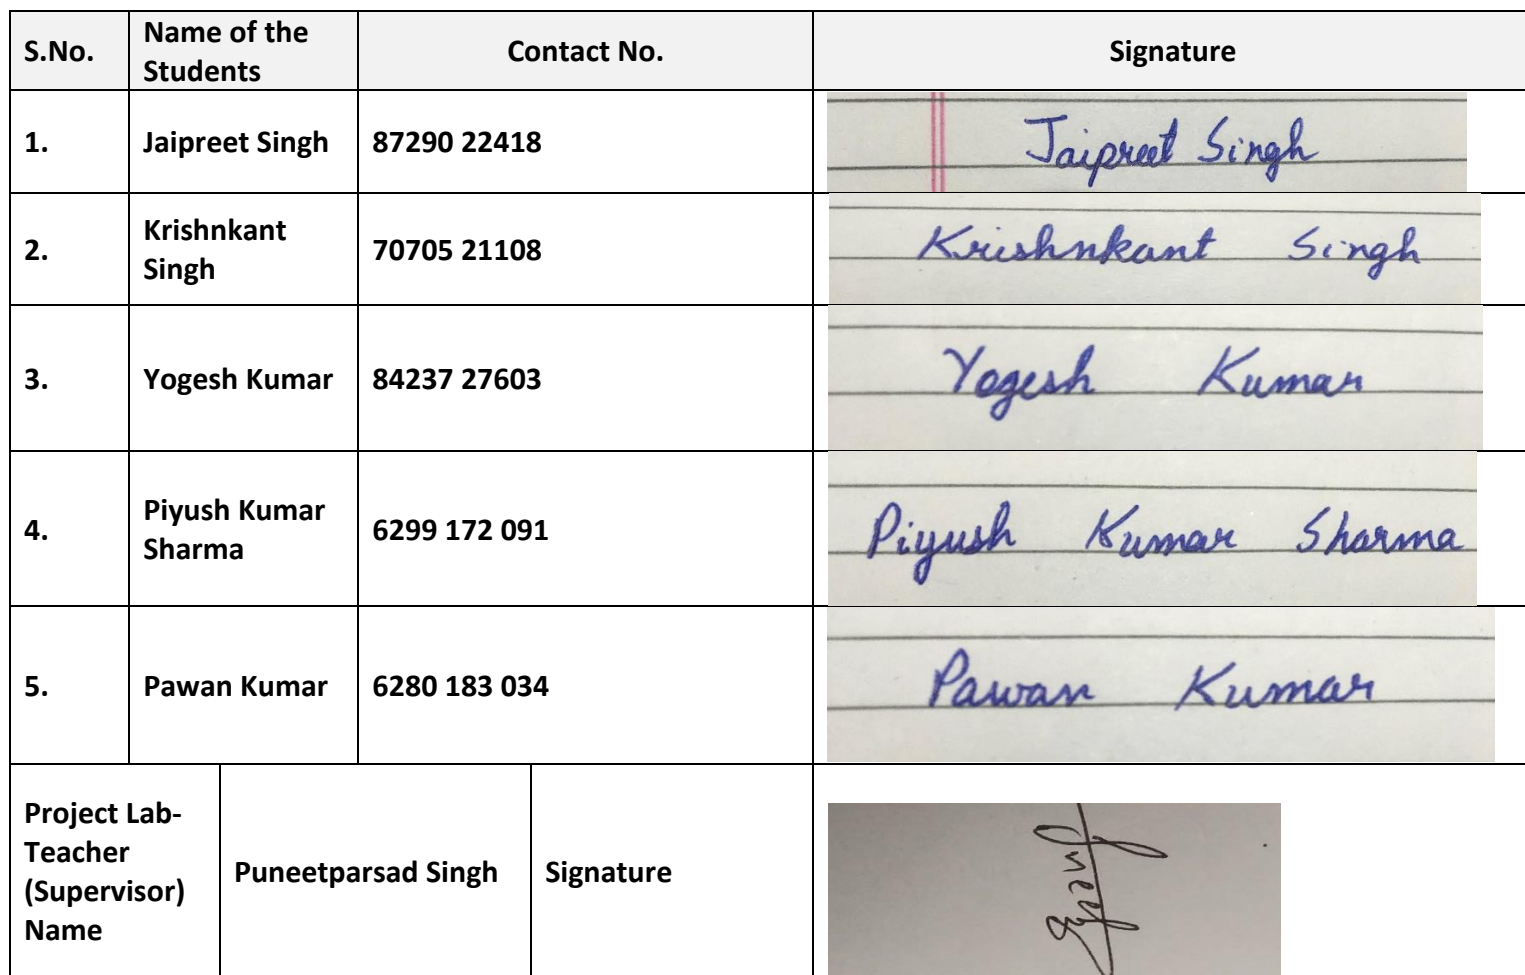 S.No.
Name of the
Students
Contact No.
Signature
1.
Jaipreet Singh
87290 22418
Jaipreet Singh
2.
Krishnkant
Singh
70705 21108
Krishnkant Singh
3.
Yogesh Kumar
84237 27603
Yogesh Kumar
4.
Piyush Kumar
Sharma
6299 172 091
Piyush Kumar Sharma
5.
Pawan Kumar
6280 183 034
Pawan Kumar
Project Lab-
Teacher
(Supervisor)
Name
Puneetparsad Singh
Signature